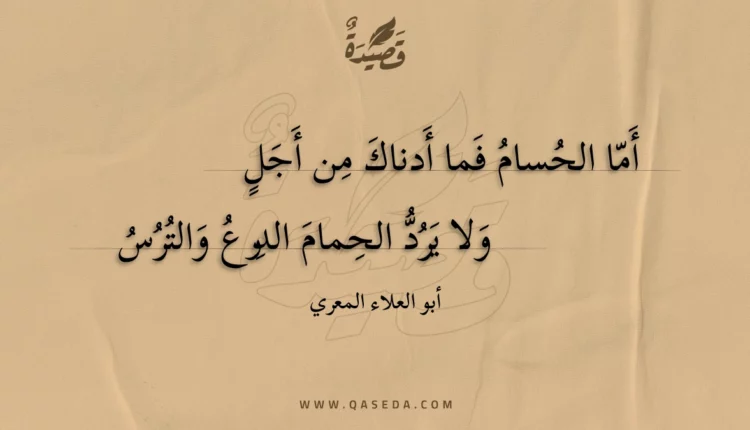 قَصِيْدَةٌ
أَمّا الحُسامُ فَما أَدناكَ مِن أَجَلٍ
وَلا يَرُدُّ الحِمامَ الدِرعُ وَالتُرُسُ
أبو العلاء المعري
WWW.QASEDA.COM